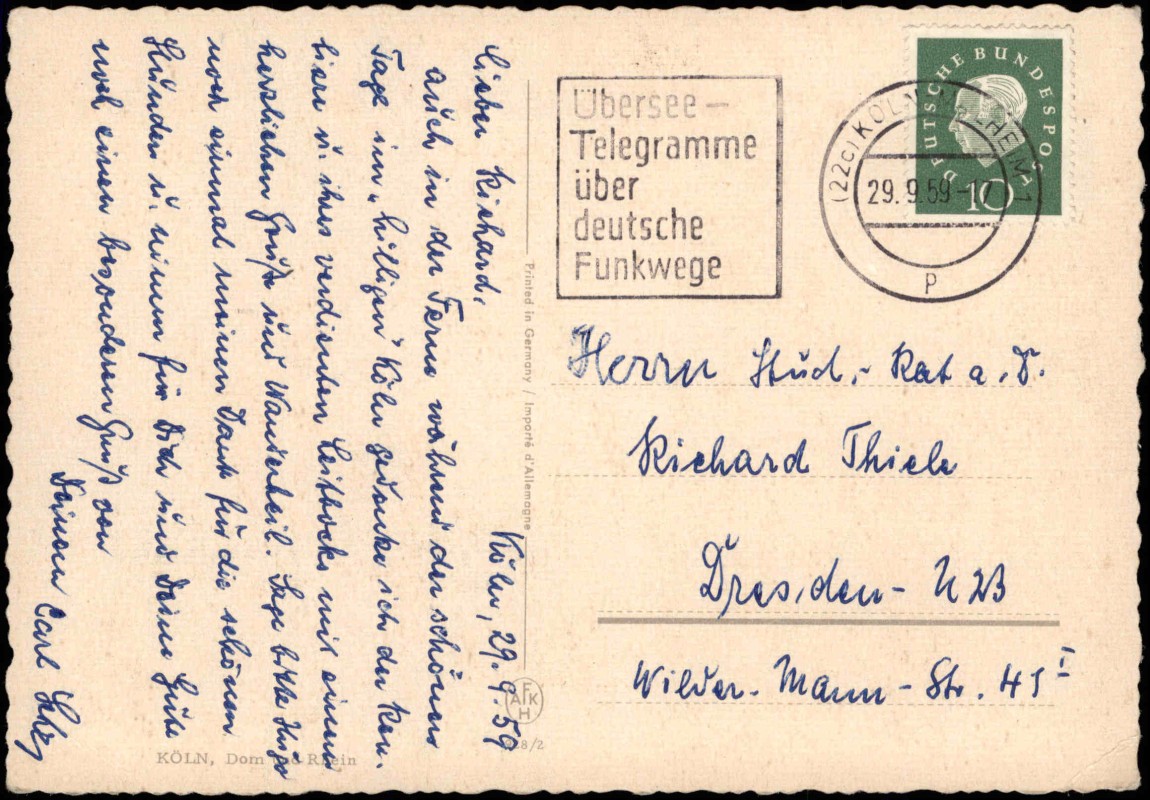 Köln, 29.9.59
Lieber Richard,
auch in der Ferne während der schönen
Tage im „hilligen" Köln gedenke ich der
u. ihres verdienten mit einem
herzlichen Gruß und Wanderheil. Sage bitte Hugo
noch einmal meinen Dank für die schönen
Stunden u. nimm für Dich und Deine Güte
noch einen besonderen Gruß von
Deinem Carl
KÖLN, Dom und Rhein
Printed in Germany / Importé d'Allemagne
AFKH
28/2
Übersee-
Telegramme
über
deutsche
Funkwege
DEUTSCHE BUNDESPOST
10
(22c) KÖLN-MÜLHEIM 1
29.9.59-17
p
Herrn Stud.-Rat a.D.
Richard Thiele
Dresden - N 23
Wilder-Mann-Str. 41 I